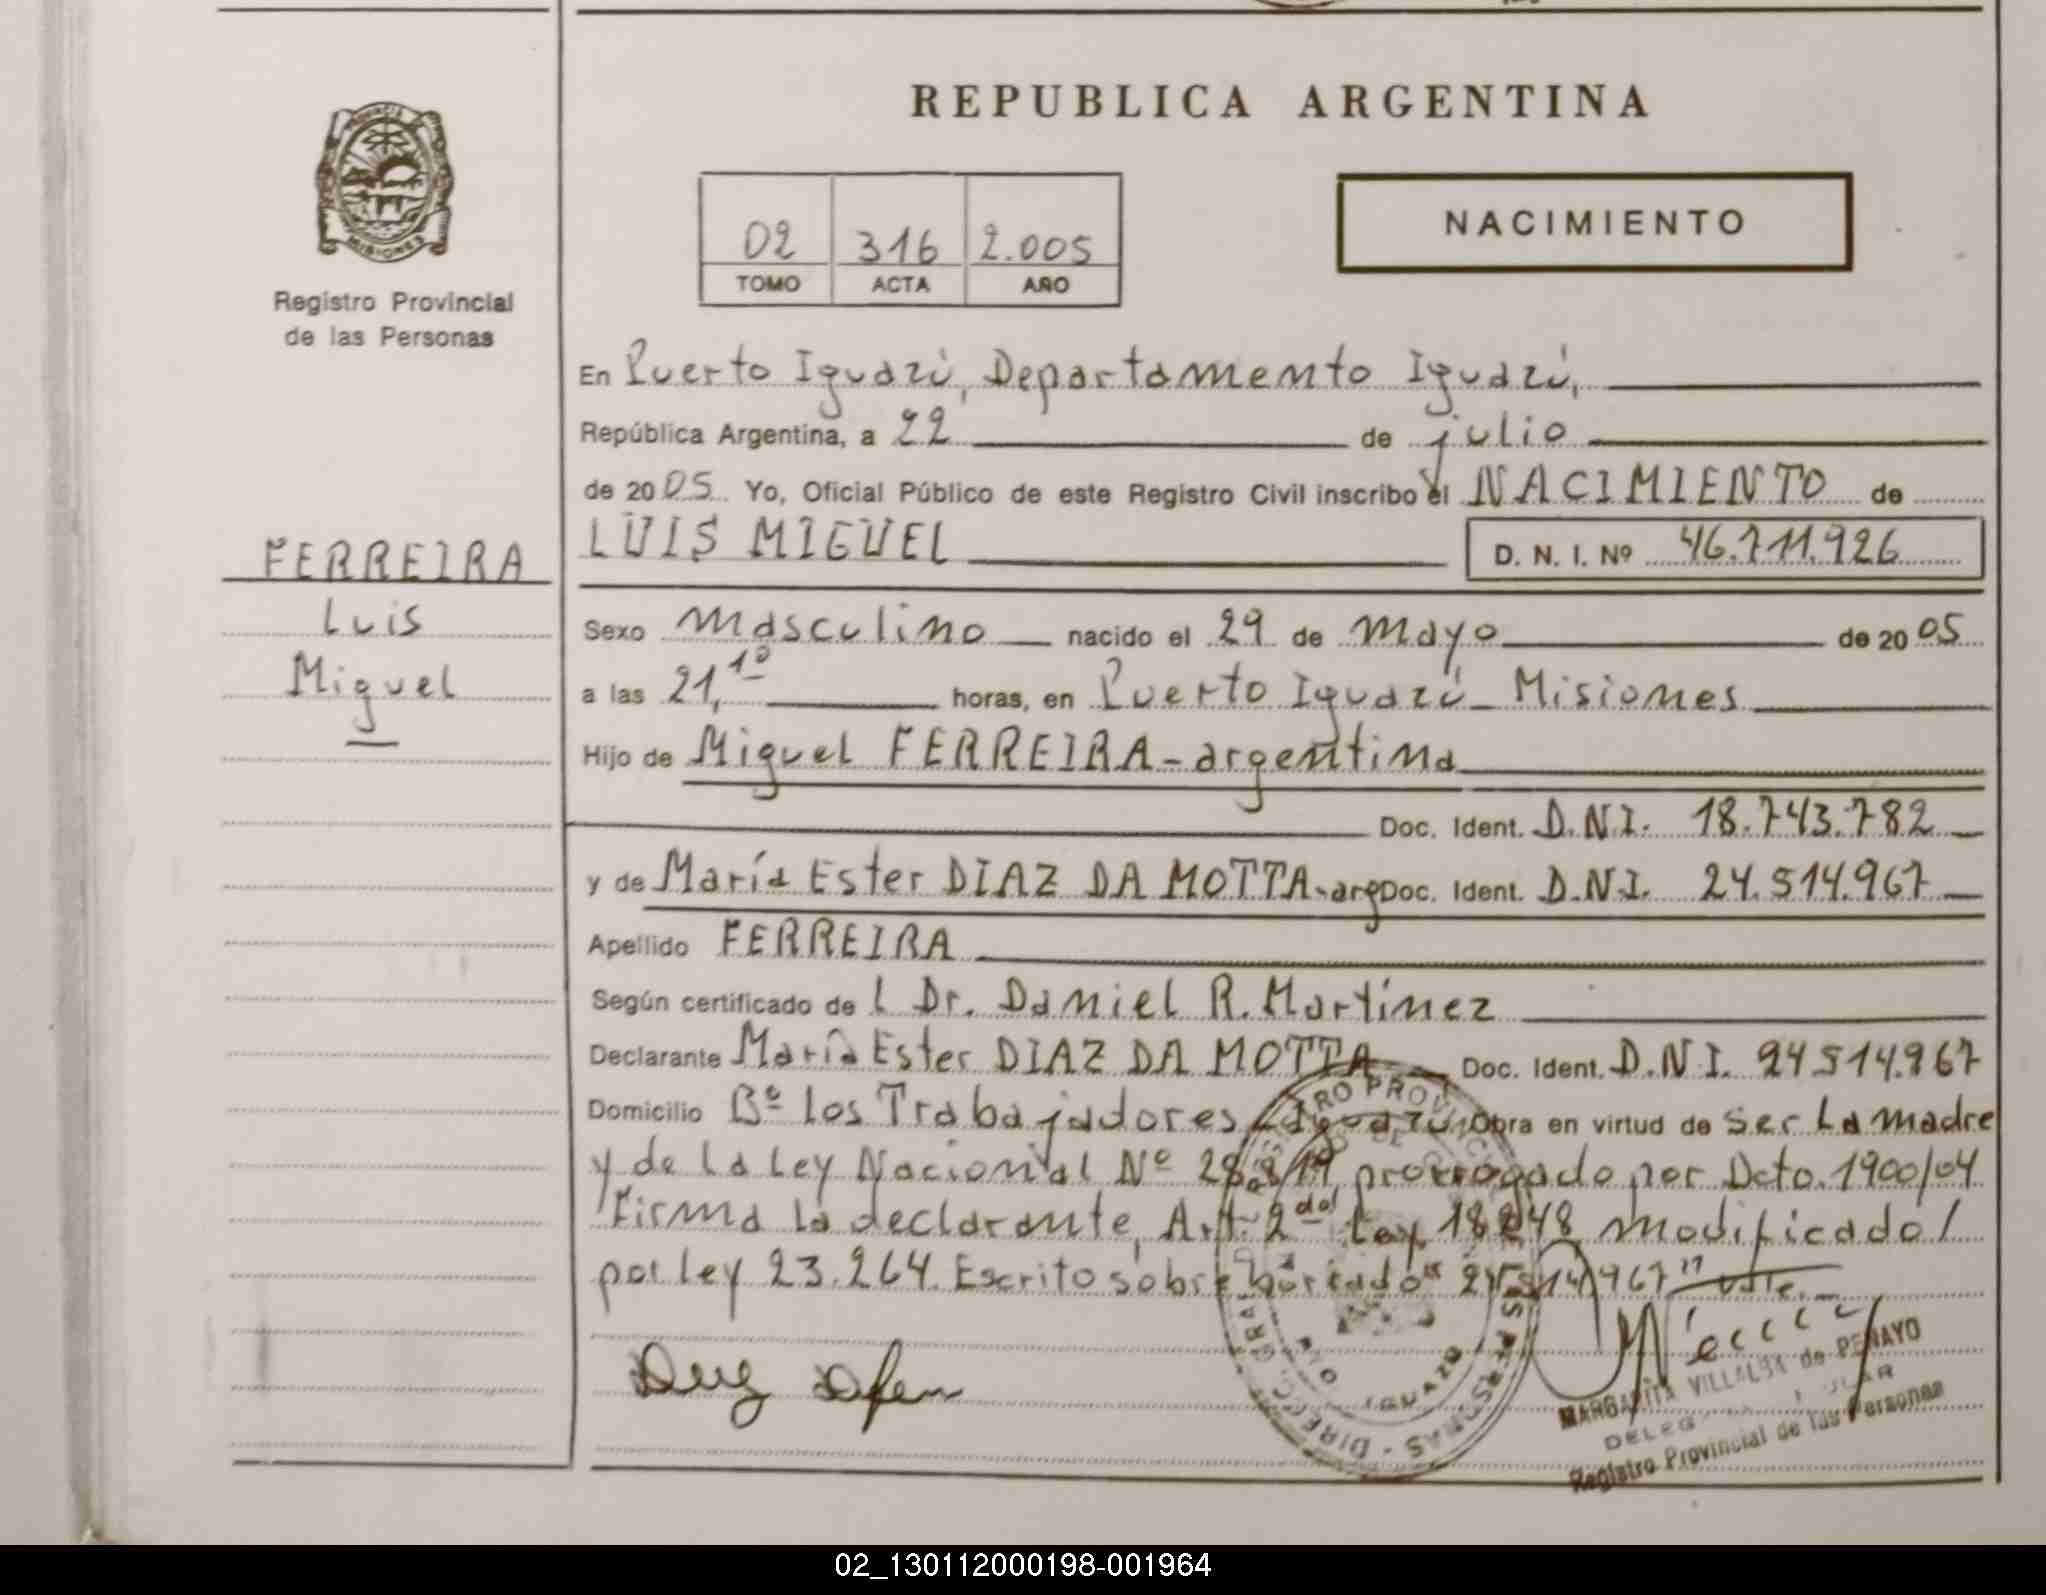 REPUBLICA ARGENTINA
PROVINCIA
MISIONES
Registro Provincial
de las Personas
02 316 2.005
TOMO ACTA AÑO
NACIMIENTO
En Puerto Iguazú, Departamento Iguazú,
República Argentina, a 22 de julio
de 2005 Yo, Oficial Público de este Registro Civil inscribo el NACIMIENTO de
FERREIRA
Luis
Miguel
LUIS MIGUEL D. N. I. Nº 46.711.926
Sexo masculino nacido el 29 de mayo de 2005
a las 21,10 horas, en Puerto Iguazú - Misiones
Hijo de Miguel FERREIRA - argentina
Doc. Ident. D.N.I. 18.743.782
y de María Ester DIAZ DA MOTTA - arg Doc. Ident. D.N.I. 24.514.967
Apellido FERREIRA
Según certificado de l Dr. Daniel R. Martínez
Declarante María Ester DIAZ DA MOTTA Doc. Ident. D.N.I. 24514.967
Domicilio Bº Los Trabajadores Iguazú Obra en virtud de ser la madre
y de la Ley Nacional Nº prorrogado por Dcto. 1900/04
Firma la declarante, Art. 2do Ley 18248 modificado/
por ley 23.264. Escrito sobre borrado " 24514967" vale.
MARGARITA VILLALBA de PENAYO
Registro Provincial de las Personas
02_130112000198-001964